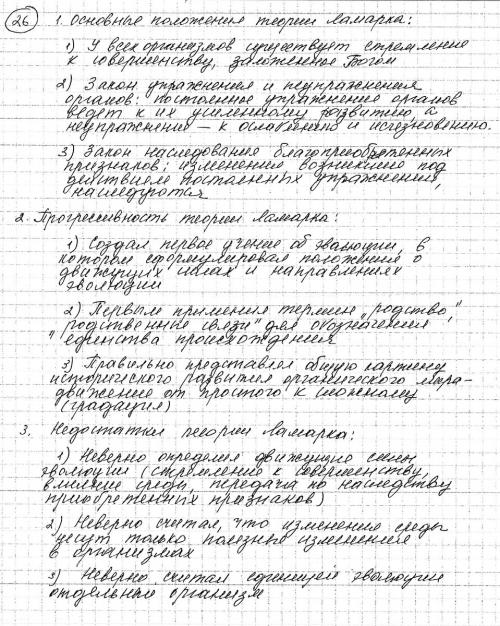 26 1. Основные положения теории Ламарка:
1) У всех организмов существует стремление
к совершенству, заложенное Богом
2) Закон упражнения и неупражнения
органов: постоянное упражнение органов
ведет к их усиленному развитию, а
неупражнение – к ослаблению и исчезновению.
3) Закон наследования благоприобретенных
признаков: изменения возникшие под
действием постоянных упражнений,
наследуются
2. Прогрессивность теории Ламарка:
1) Создал первое учение об эволюции, в
котором сформулировал положение о
движущих силах и направлениях
эволюции
2) Первым применил термин „родство",
„родственные связи" для обозначения
единства происхождения
3) Правильно представлял общую картину
исторического развития органического мира-
движение от простого к сложному
(градация)
3. Недостатки теории Ламарка:
1) Неверно определял движущие силы
эволюции (стремление к совершенству,
влияние среды, передача по наследству
приобретенных признаков)
2) Неверно считал, что изменения среды
несут только полезные изменения
в организмах
3) Неверно считал единицей эволюции
отдельный организм